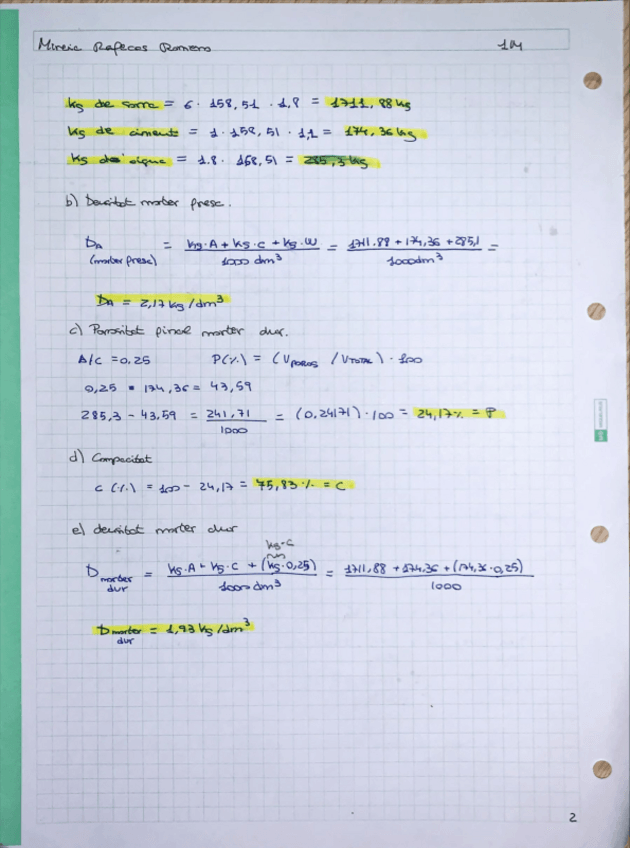 Mireia Rafecas Romero 1M
kg de sorra = 6 · 158,51 · 1,8 = 1711,88 kg
kg de ciment = 1 · 158,51 · 1,1 = 174,36 kg
kg d'aigua = 1.8 · 158,51 = 285,3 kg
b) Densitat morter fresc.
DA (morter fresc) = kg·A + kg·C + kg·W / 1000 dm³ = 1711.88 + 174,36 + 285,1 / 1000dm³ =
DA = 2,17 kg/dm³
c) Porositat final morter dur.
A/C = 0,25 P(%) = (VPOROS / VTOTAL) · 100
0,25 · 174,36 = 43,59
285,3 - 43,59 = 241,71 / 1000 = (0,24171) · 100 = 24,17% = P
d) Compacitat
C (%) = 100 - 24,17 = 75,83 % = C
e) densitat morter dur
kg·C
D morter dur = kg·A + kg·C + (kg·0,25) / 1000 dm³ = 1711,88 + 174,36 + (174,36·0,25) / 1000
D morter dur = 1,93 kg/dm³
2